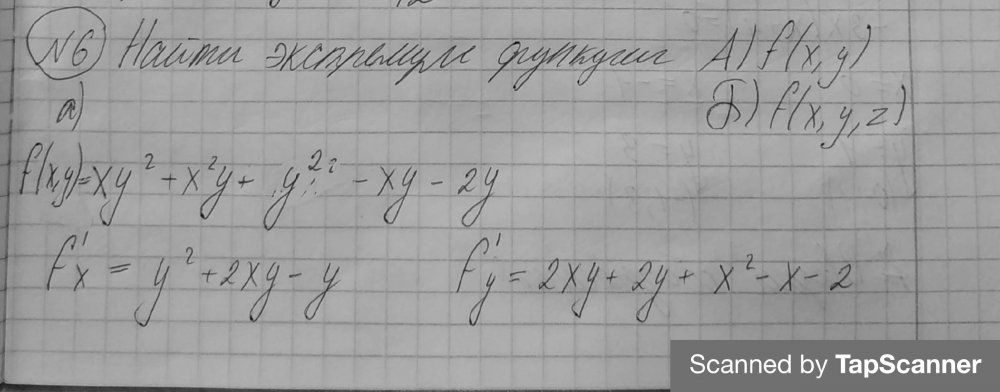 №6 Найти экстремум функции А) f(x,y)
а) Б) f(x,y,z)
f(x,y)=xy² + x²y + y² - xy - 2y
f'x = y² + 2xy - y f'y = 2xy + 2y + x² - x - 2
Scanned by TapScanner